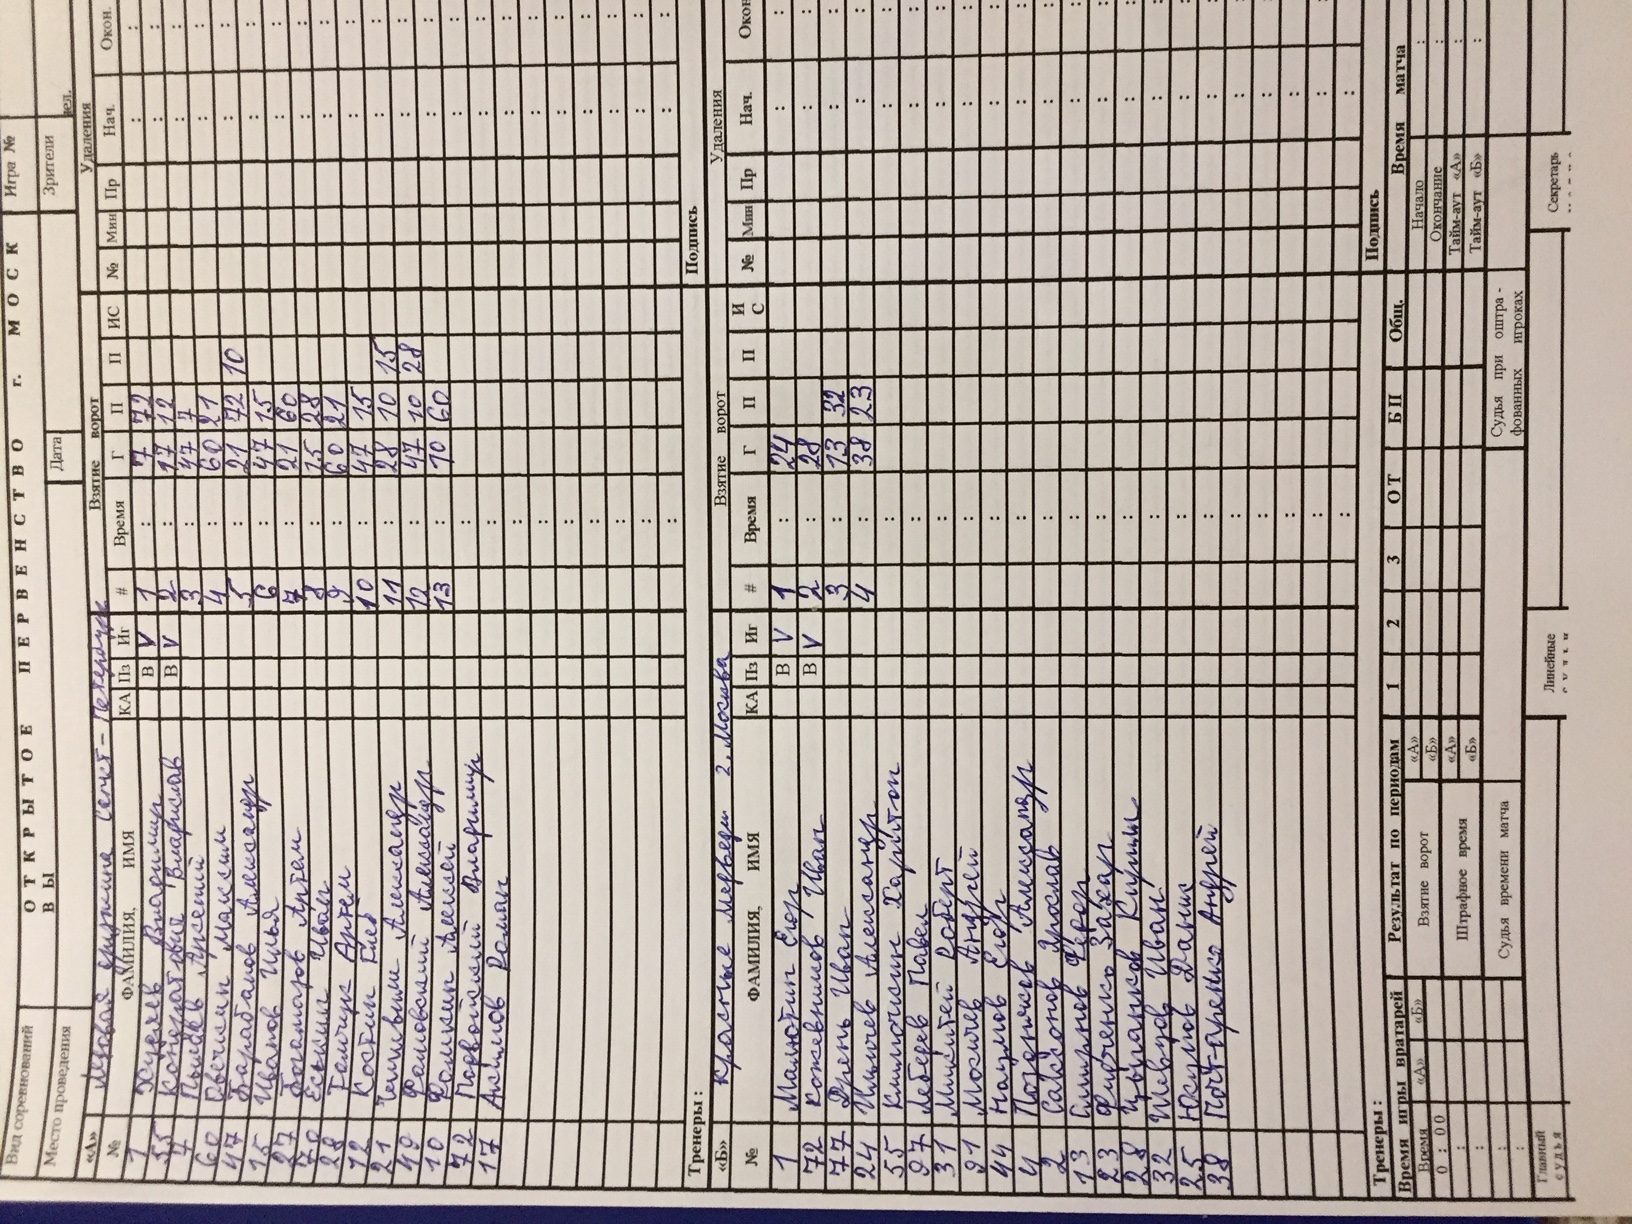 ОТКРЫТОЕ ПЕРВЕНСТВО г. МОСК
ВЫ
Вид соревнований
Игра №
Место проведения
Дата
Зрители
чел.
«А» Ледовая дружина Санкт-Петербург
Взятие ворот
Удаления
№ ФАМИЛИЯ, ИМЯ КА Пз Иг # Время Г П П ИС № Мин Пр Нач. Окон.
1 Владимир В V 1 : 7 72 : :
55 Кондратовий Владислав В V 2 : 17 12 : :
7 Арсений 3 : 47 7 : :
60 Овечкин Максим 4 : 60 21 : :
47 Барабанов Александр 5 : 21 72 10 : :
15 Иванов Илья 6 : 47 15 : :
27 Артем 7 : 21 60 : :
70 Еськин Иван 8 : 15 28 : :
28 Артем 9 : 60 21 : :
12 Костин Глеб 10 : 47 15 : :
21 Александр 11 : 28 10 15 : :
49 Александр 12 : 47 10 28 : :
10 Фомкин Алексей 13 : 10 60 : :
72 Подвойский Владимир : : :
17 Анисимов Роман : : :
Тренеры :
Подпись
«Б» Красные медведи г. Москва
Взятие ворот
Удаления
№ ФАМИЛИЯ, ИМЯ КА Пз Иг # Время Г П П И С № Мин Пр Нач. Окон
1 Малютин Егор В V 1 : 24 : :
72 Кожевников Иван В V 2 : 28 : :
77 Дрень Иван 3 : 13 32 : :
24 Ильичев Александр 4 : 38 23 : :
55 Харитон : : :
97 Лебедев Павел : : :
31 Микитей Роберт : : :
91 Мосичев Андрей : : :
44 Наумов Егор : : :
4 Поздняков Александр : : :
2 Саксонов Ярослав : : :
13 Смирнов Фёдор : : :
23 Фидченко Захар : : :
28 Цыганков Кирилл : : :
32 Шевцов Иван : : :
25 Юсупов Даник : : :
38 Андрей : : :
Тренеры :
Подпись
Время игры вратарей
Результат по периодам 1 2 3 ОТ БП Общ.
Время матча
Время «А» «Б»
0 : 00
Взятие ворот «А»
«Б»
Штрафное время «А»
«Б»
Начало :
Окончание :
Тайм-аут «А» :
Тайм-аут «Б» :
Судья времени матча
Судья при оштра -
фованных игроках
Главный
судья
Линейные
Секретарь